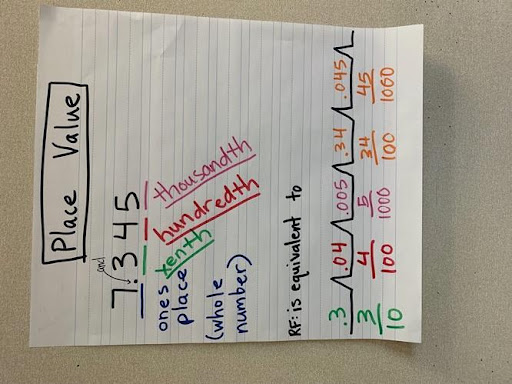 Place Value
and
7.345
ones tenth hundredth thousandth
place
(whole
number)
RF: is equivalent to
.3 .04 .005 .34 .045
3/10 4/100 5/1000 34/100 45/1000